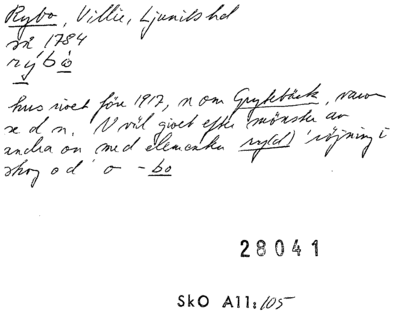 Rybo, Villie, Ljunits hd
så 1784
rýbò
hus rivet före 1917, n om Grytebäck, varom
se d n. N väl givet efter mönster av
andra on med elementen ry(d) 'röjning i
skog o d' o -bo
28041
SkO All: 105